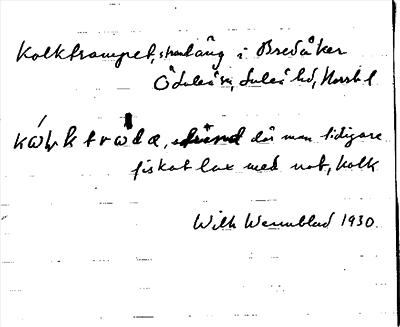 Kolktrampet, strandäng i Bredåker
Ö Luleå sn, Luleå hd, Norrb l
strand där man tidigare
fiskat lax med not, kolk
Wilh Wennblad 1930.